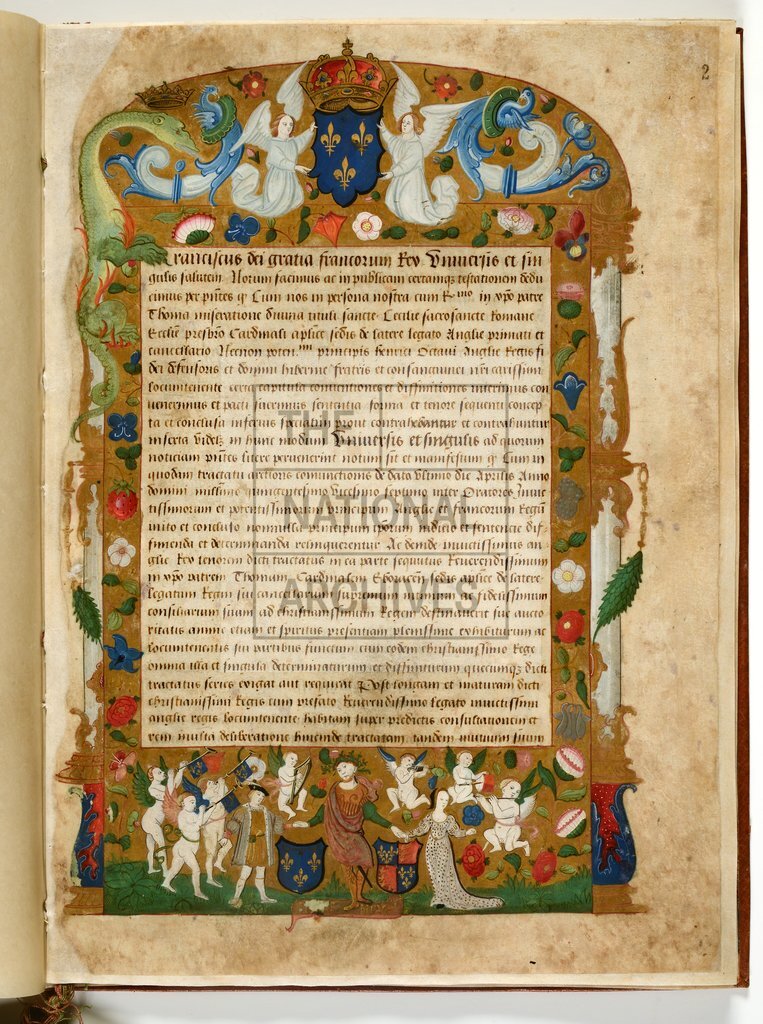 2
Franciscus dei gratia francorum Rex Universis et sin
gulis salutem. Notum facimus ac in publicam certamque testationem dedu
cimus per pntes q Cum nos in persona nostra cum R.mo in xpo patre
Thoma miseratione divina tituli sancte Cecilie sacrosancte Romane
Ecclie presbro Cardinali aplice sedis de latere legato Anglie primati et
cancellario Necnon poten.mi principis henrici Octavi Anglie Regis fi
dei defensoris et domini hibernie fratris et consanguinei nri carissimi
locumtenente certa capitula conventiones et diffinitiones inierimus con
venerimus et pacti fuerimus sententia forma et tenore sequenti concep
ta et conclusa inferius specialim prout contrahebantur et contrahuntur
inserta videlz in hunc modum Universis et singulis ad quorum
noticiam pntes litere pervenerint notum sit et manifestum q Cum in
quodam tractatu arctioris coniunctionis de dato ultimo die Aprilis Anno
domini millesimo quingentesimo vicesimo septimo inter Oratores invic
tissimorum et potentissimorum principum Anglie et francorum Regum
inito et concluso nonnulla principum ipsorum iudicio et sententie dif
finienda et determinanda relinquerentur Ac deinde invictissimus an
glie Rex tenorem dicti tractatus in ea parte sequutus Reverendissimum
in xpo patrem Thomam Cardinalem Eboracen sedis aplice de latere
legatum Regni sui cancellarium supremum intimum ac fidelissimum
consiliarium suum ad christianissimum Regem destinaverit sue aucto
ritatis anime etiam et spiritus presentiam plenissime exhibiturum ac
locumtenentis sui partibus functum cum eodem christianissimo Rege
omnia illa et singula determinaturum et diffiniturum quecumque dicti
tractatus series exigat aut requirat Post longam et maturam dicti
christianissimi Regis cum prefato Reverendissimo legato invictissimi
anglie regis locumtenente habitam super predictis consultationem et
rem iniusta deliberatione hincinde tractatam tandem mutuum suum
THE
NATIONAL
ARCHIVES